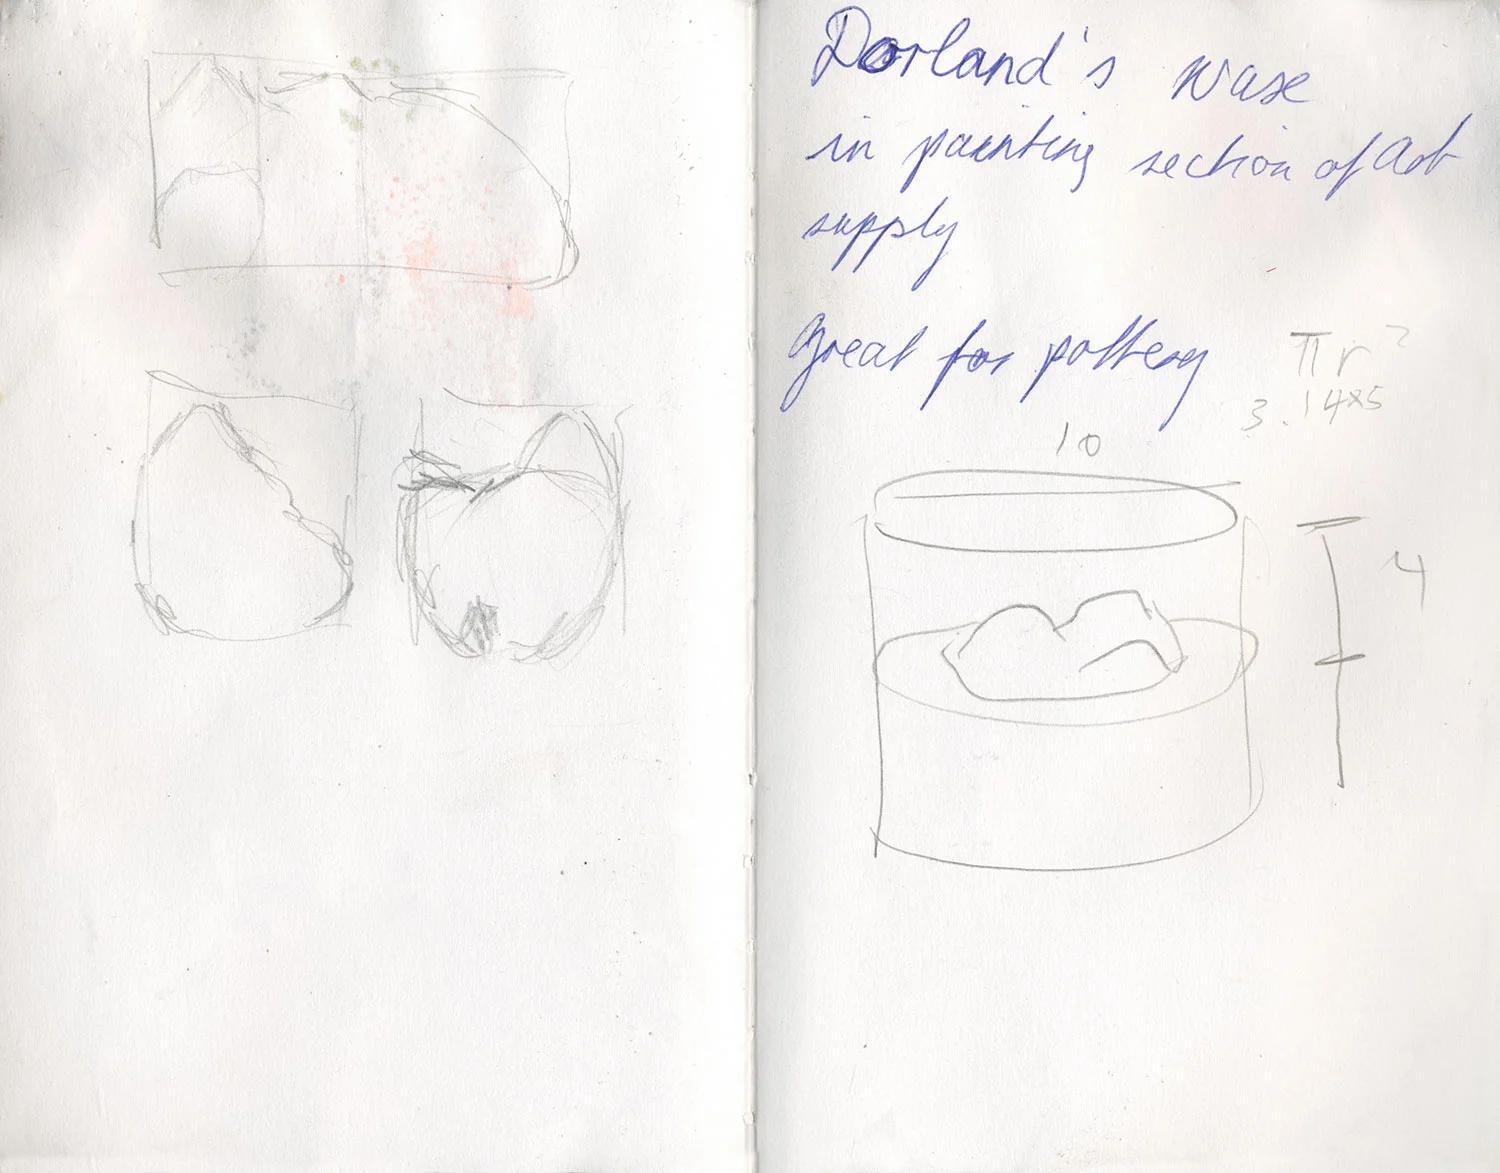 Dorland's waxe
in painting section of Art
supply
great for pottery
πr²
3.14x5
10
4